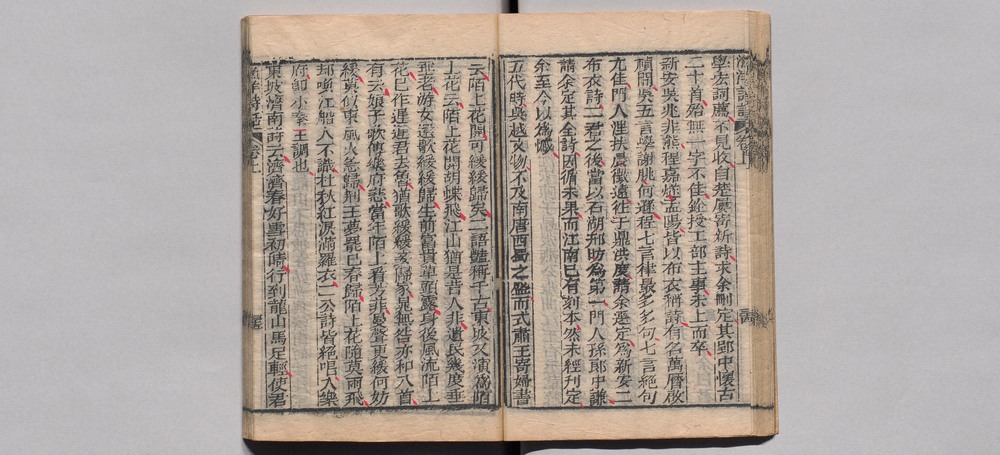 漁洋詩話 卷上
學宏詞薦不見收自楚屢寄新詩求余刪定其郢中懷古
二十首殆無一字不佳銓授工部主事未上而卒
新安吳兆非熊程嘉燧孟陽皆以布衣稱詩有名萬曆啟
禎間吳五言學謝朓何遜程七言律最多多句七言絕句
尤佳門人汪扶晨徵遠往于鼎洪度請余選定為新安二
布衣詩二君之後當以石湖邢昉為第一門人孫郎中謙
請余定其全詩因循未果而江南已有刻本然未經刊定
余至今以為憾
五代時吳越文物不及南唐西蜀之盛而武肅王寄婦書
云陌上花開可緩緩歸矣二語豔稱千古東坡又演為陌
上花云陌上花開胡蝶飛江山猶是昔人非遺民幾度垂
垂老游女還歌緩緩歸生前富貴草頭露身後風流陌上
花已作遲遲君去魯猶歌緩緩妾歸家晁無咎亦和八首
有云娘子歌傳樂府悲當年陌上看芳菲曼聲更緩何妨
緩莫似東風火急歸荊王夢罷已春歸陌上花隨莫雨飛
却喚江船人不識杜秋紅淚滿羅衣二公詩皆絕唱入樂
府即小秦王調也
東坡濟南詩云濟濟春好雪初晴行到龍山馬足輕使君
漁洋詩話 卷上